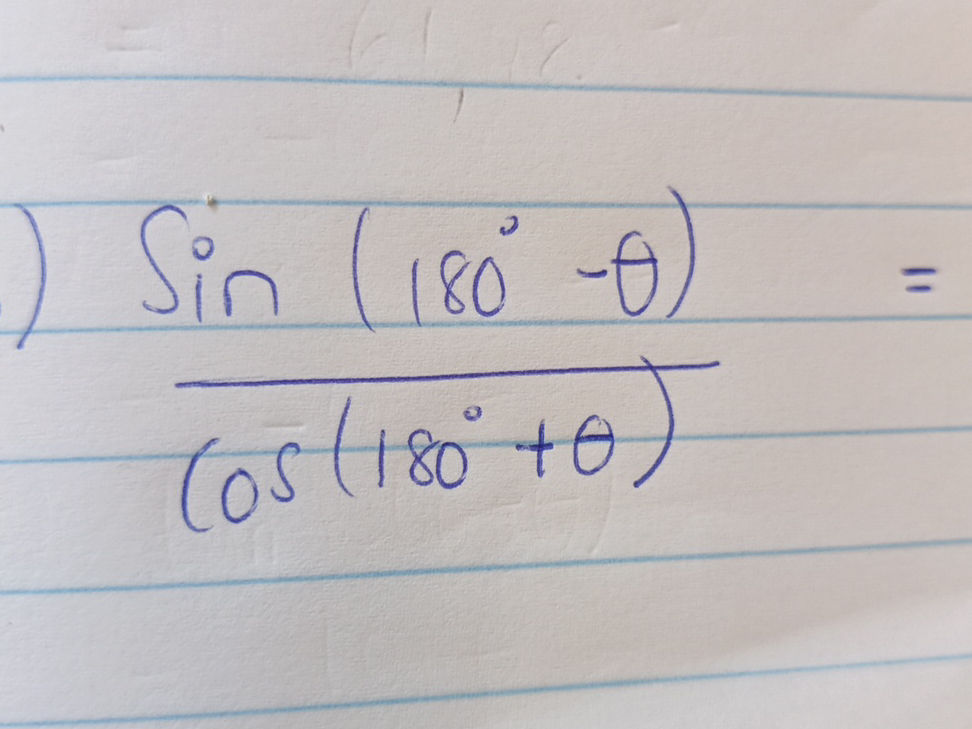 ) Sin (180° -θ) =
cos(180° +θ)